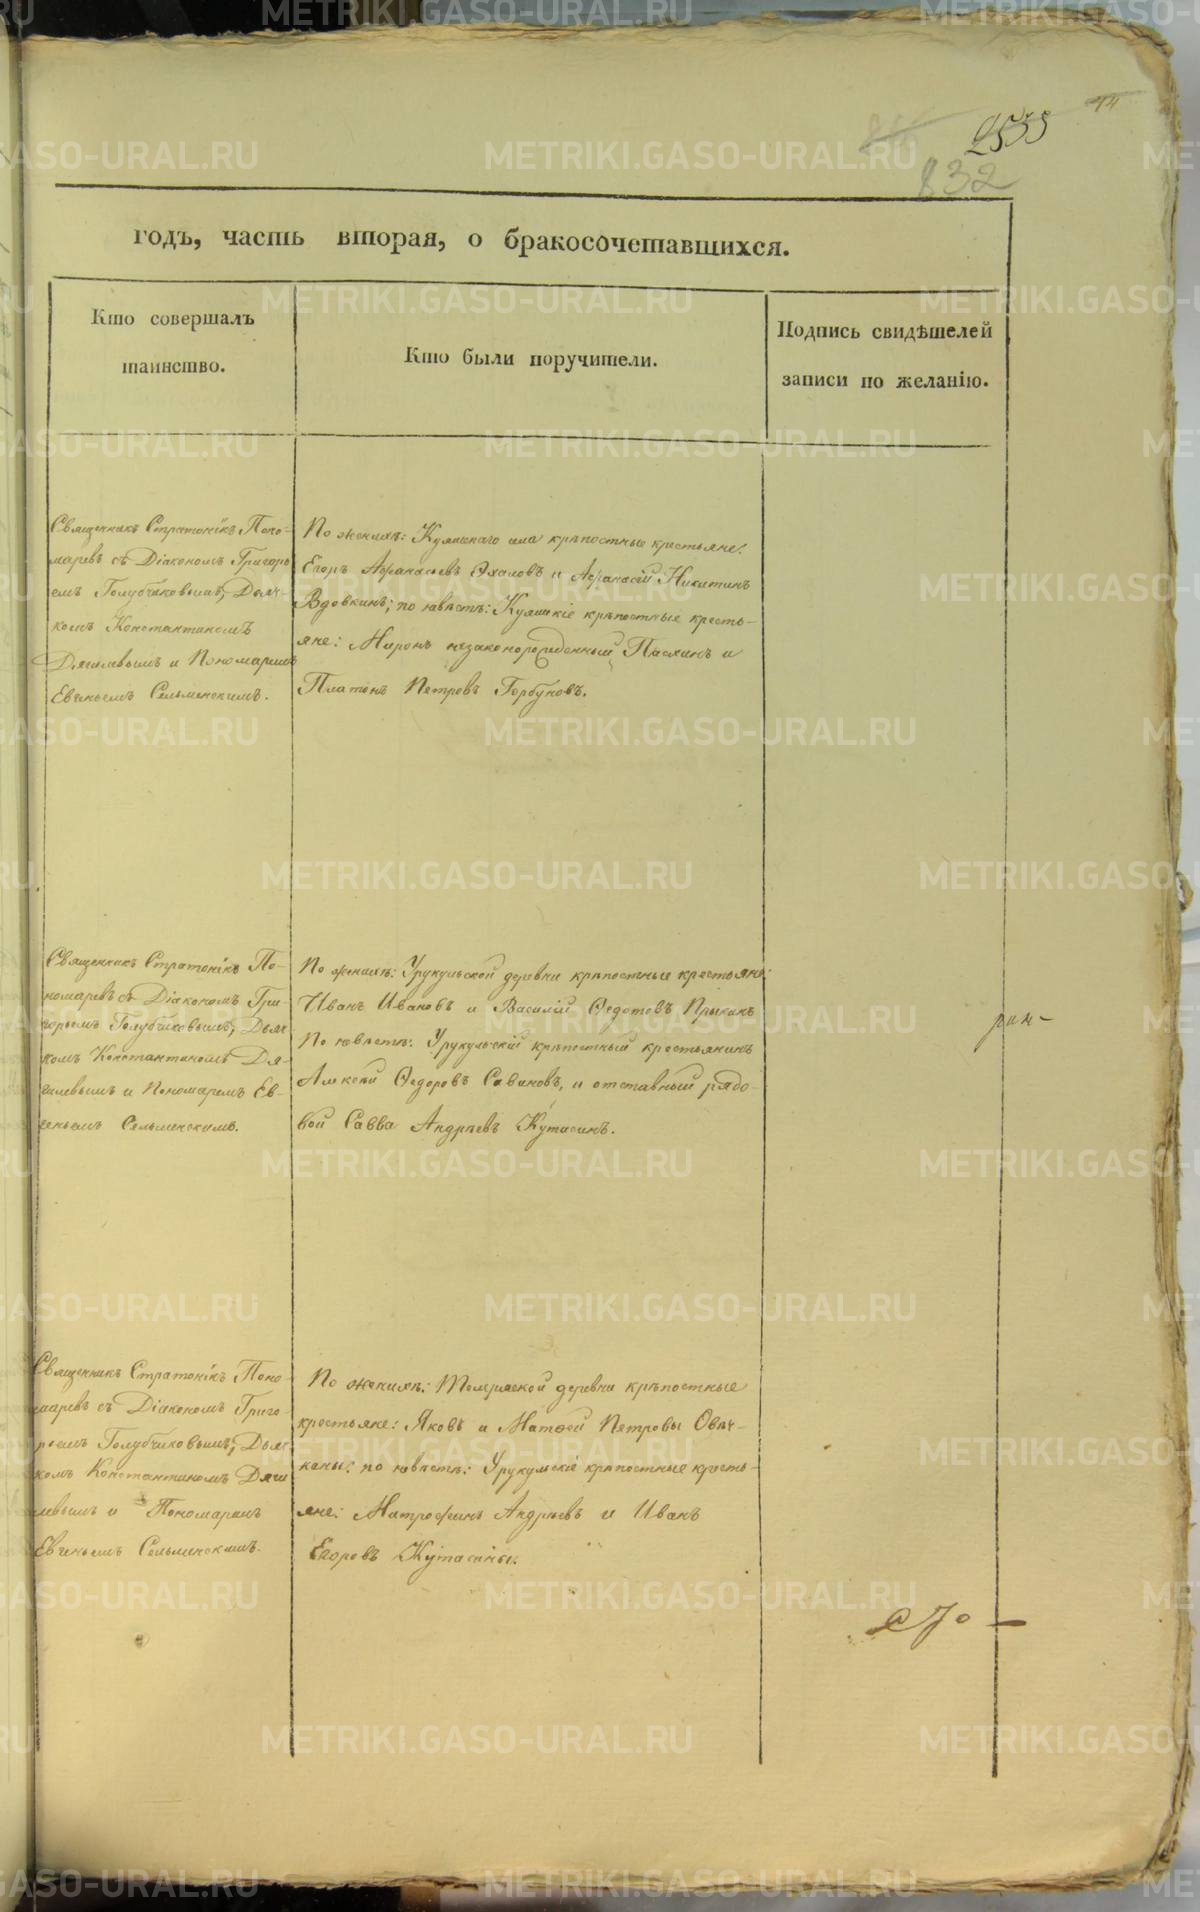 14
2533
832
годъ, часть вторая, о бракосочетавшихся.
Кто совершалъ
таинство.
Кто были поручители.
Подпись свидѣтелей
записи по желанію.
Священникъ Стратоникъ Поно-
маревъ съ Діакономъ Григорь
емъ Голубчиковымъ, Дьяч-
комъ Константиномъ
Дягилевымъ и Пономаремъ
Евгеньемъ Сельменскимъ.
По женихѣ: Куяшскаго села крѣпостные крестьяне:
Егоръ Афанасьевъ и Афанасій Никитинъ
Вдовкинъ; по невѣстѣ: Куяшскіе крѣпостные кресть-
яне: Миронъ незаконорожденный Паслинъ и
Платонъ Петровъ Горбуновъ.
Священникъ Стратоникъ По-
номаревъ съ Діакономъ Гри-
горьемъ Голубчиковымъ, Дьяч
комъ Константиномъ Дя-
гилевымъ и Пономаремъ Ев-
геньемъ Сельменскимъ.
По женихѣ: Урукульской деревни крѣпостные крестьяне:
Иванъ Ивановъ и Василій Ѳедотовъ Прыкинъ
По невѣстѣ: Урукульскій крѣпостный крестьянинъ
Алексѣй Ѳедоровъ Савиновъ, и отставный рядо-
вой Савва Андреевъ Кутасинъ.
рин-
Священникъ Стратоникъ Поно-
маревъ съ Діакономъ Григо-
рьемъ Голубчиковымъ, Дьяч
комъ Константиномъ Дяги
левымъ и Пономаремъ
Евгеньемъ Сельменскимъ.
По женихѣ: деревни крѣпостные
крестьяне: Яковъ и Матвей Петровы Овеч-
кины; по невѣстѣ: Урукульскіе крѣпостные кресть-
яне: Митрофанъ Андреевъ и Иванъ
Егоровъ Кутасины.
METRIKI.GASO-URAL.RU